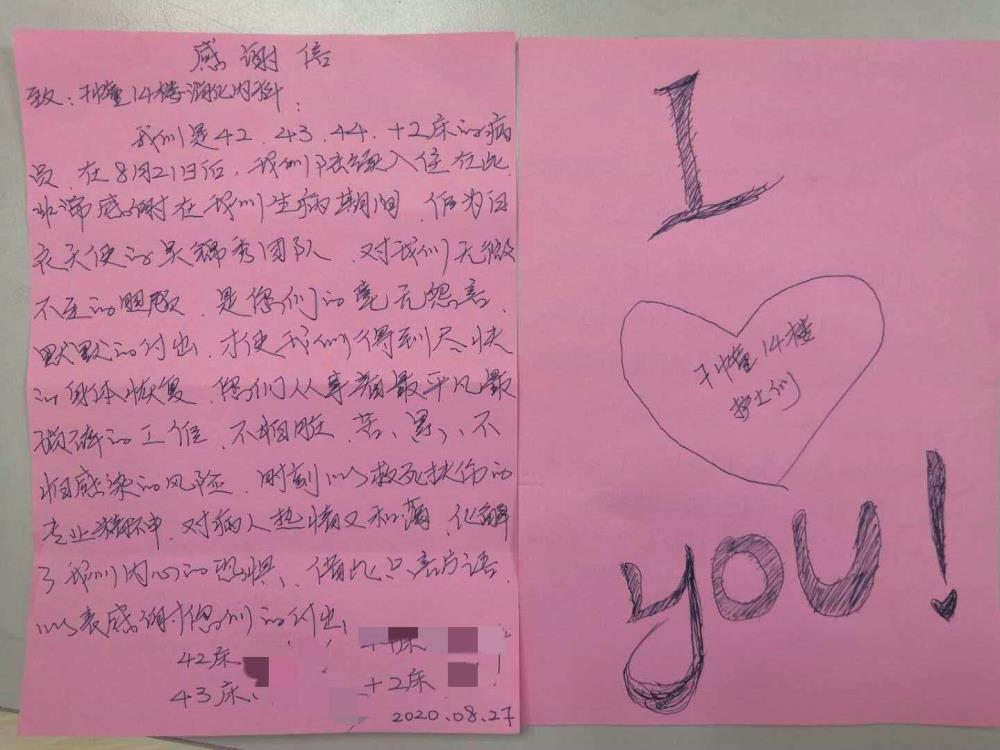 感谢信
致：肿瘤14楼消化内科：
我们是42.43.44.+2床的病
员.在8月21日后,我们陆续入住在此.
非常感谢在我们生病期间.作为白
衣天使的吴锦秀团队.对我们无微
不至的照顾.是您们的毫无怨言.
默默的付出.才使我们得到尽快
的身体恢复.您们从事着最平凡最
琐碎的工作.不怕脏、苦、累、不
怕感染的风险.时刻以救死扶伤的
专业精神.对病人热情又和蔼.化解
了我们内心的恐惧、借此只言片语.
以表感谢您们的付出
42床
43床
+2床
2020.08.27
I
肿瘤14楼
护士们
you!